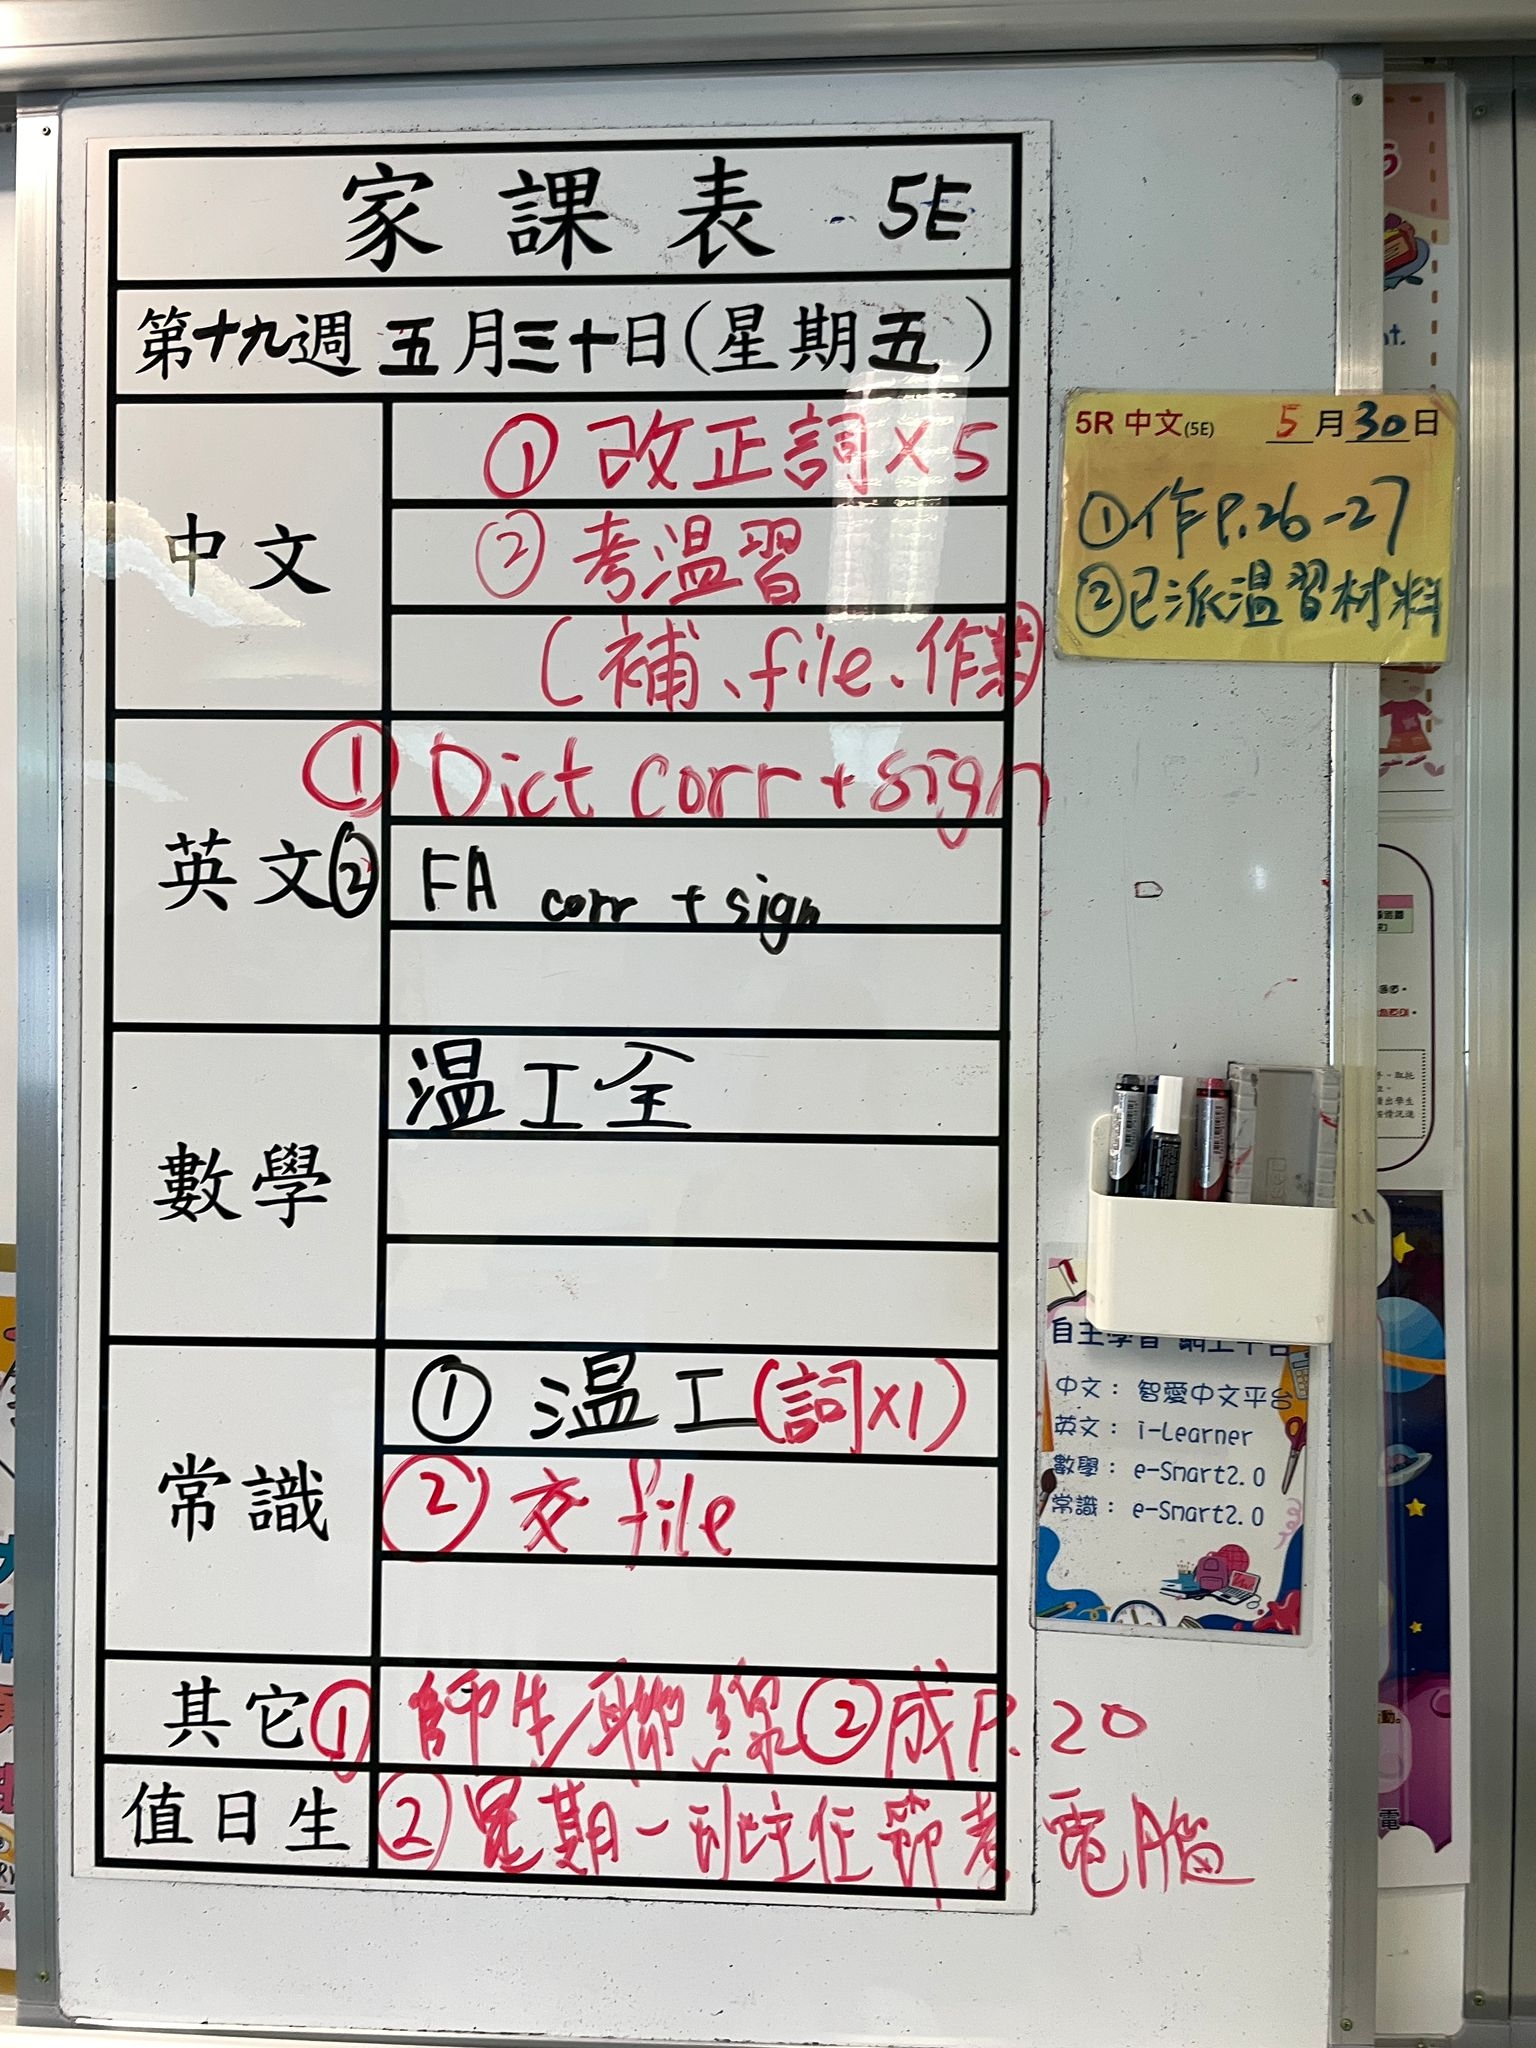 家課表 5E
第十九週 五月三十日(星期五)
中文
① 改正詞×5
② 考溫習
(補、file、作業)
英文
① Dict corr + sign
② FA corr + sign
數學
温工全
常識
① 温工(詞×1)
② 交 file
其它
① 師生聯線 ② 成P.20
值日生
② 星期一班主任節考電腦
5R 中文(5E) 5月30日
①作P.26-27
②已派温習材料
自主學習 網上平台
中文： 智愛中文平台
英文： i-Learner
數學： e-Smart2.0
常識： e-Smart2.0